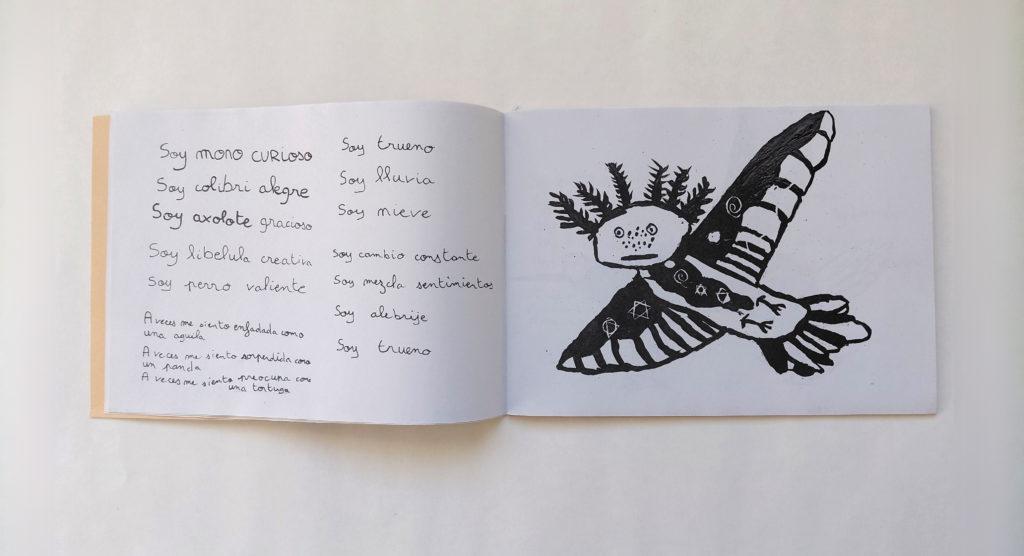 Soy mono curioso
Soy colibri alegre
Soy axolote gracioso
Soy libelula creativa
Soy perro valiente
A veces me siento enfadada como
una aguila
A veces me siento sorpendida como
un panda
A veces me siento preocupa como
una tortuga
Soy trueno
Soy lluvia
Soy nieve
Soy cambio constante
Soy mezcla sentimientos
Soy alebrije
Soy trueno